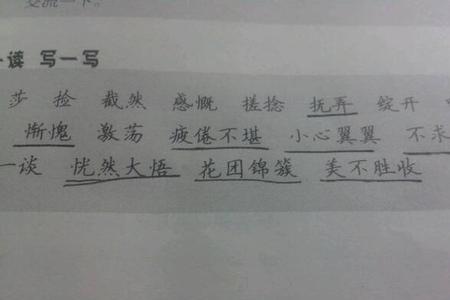 交流一下。
读 写一写
莎 捡 截然 感慨 搓捻 抚弄 绽开
惭愧 激荡 疲倦不堪 小心翼翼 不求
一谈 恍然大悟 花团锦簇 美不胜收